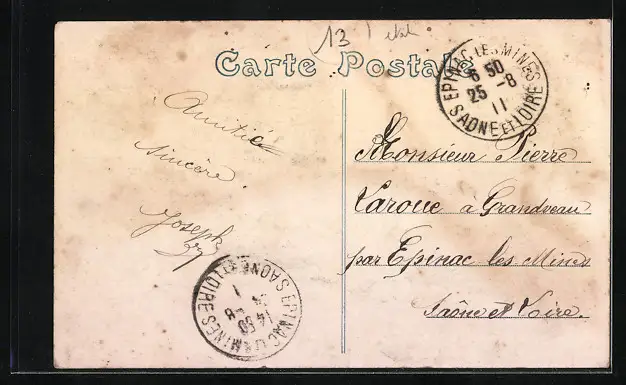 13
Carte Postale
EPINAC LES MINES
6 50
25 -8
11
SAONE ET LOIRE
Amitié
sincère
Joseph
Monsieur Pierre
Laroue a Grandveau
par Epinac les Mines
Saône et Loire.
EPINAC LES MINES
14 50
SAONE ET LOIRE